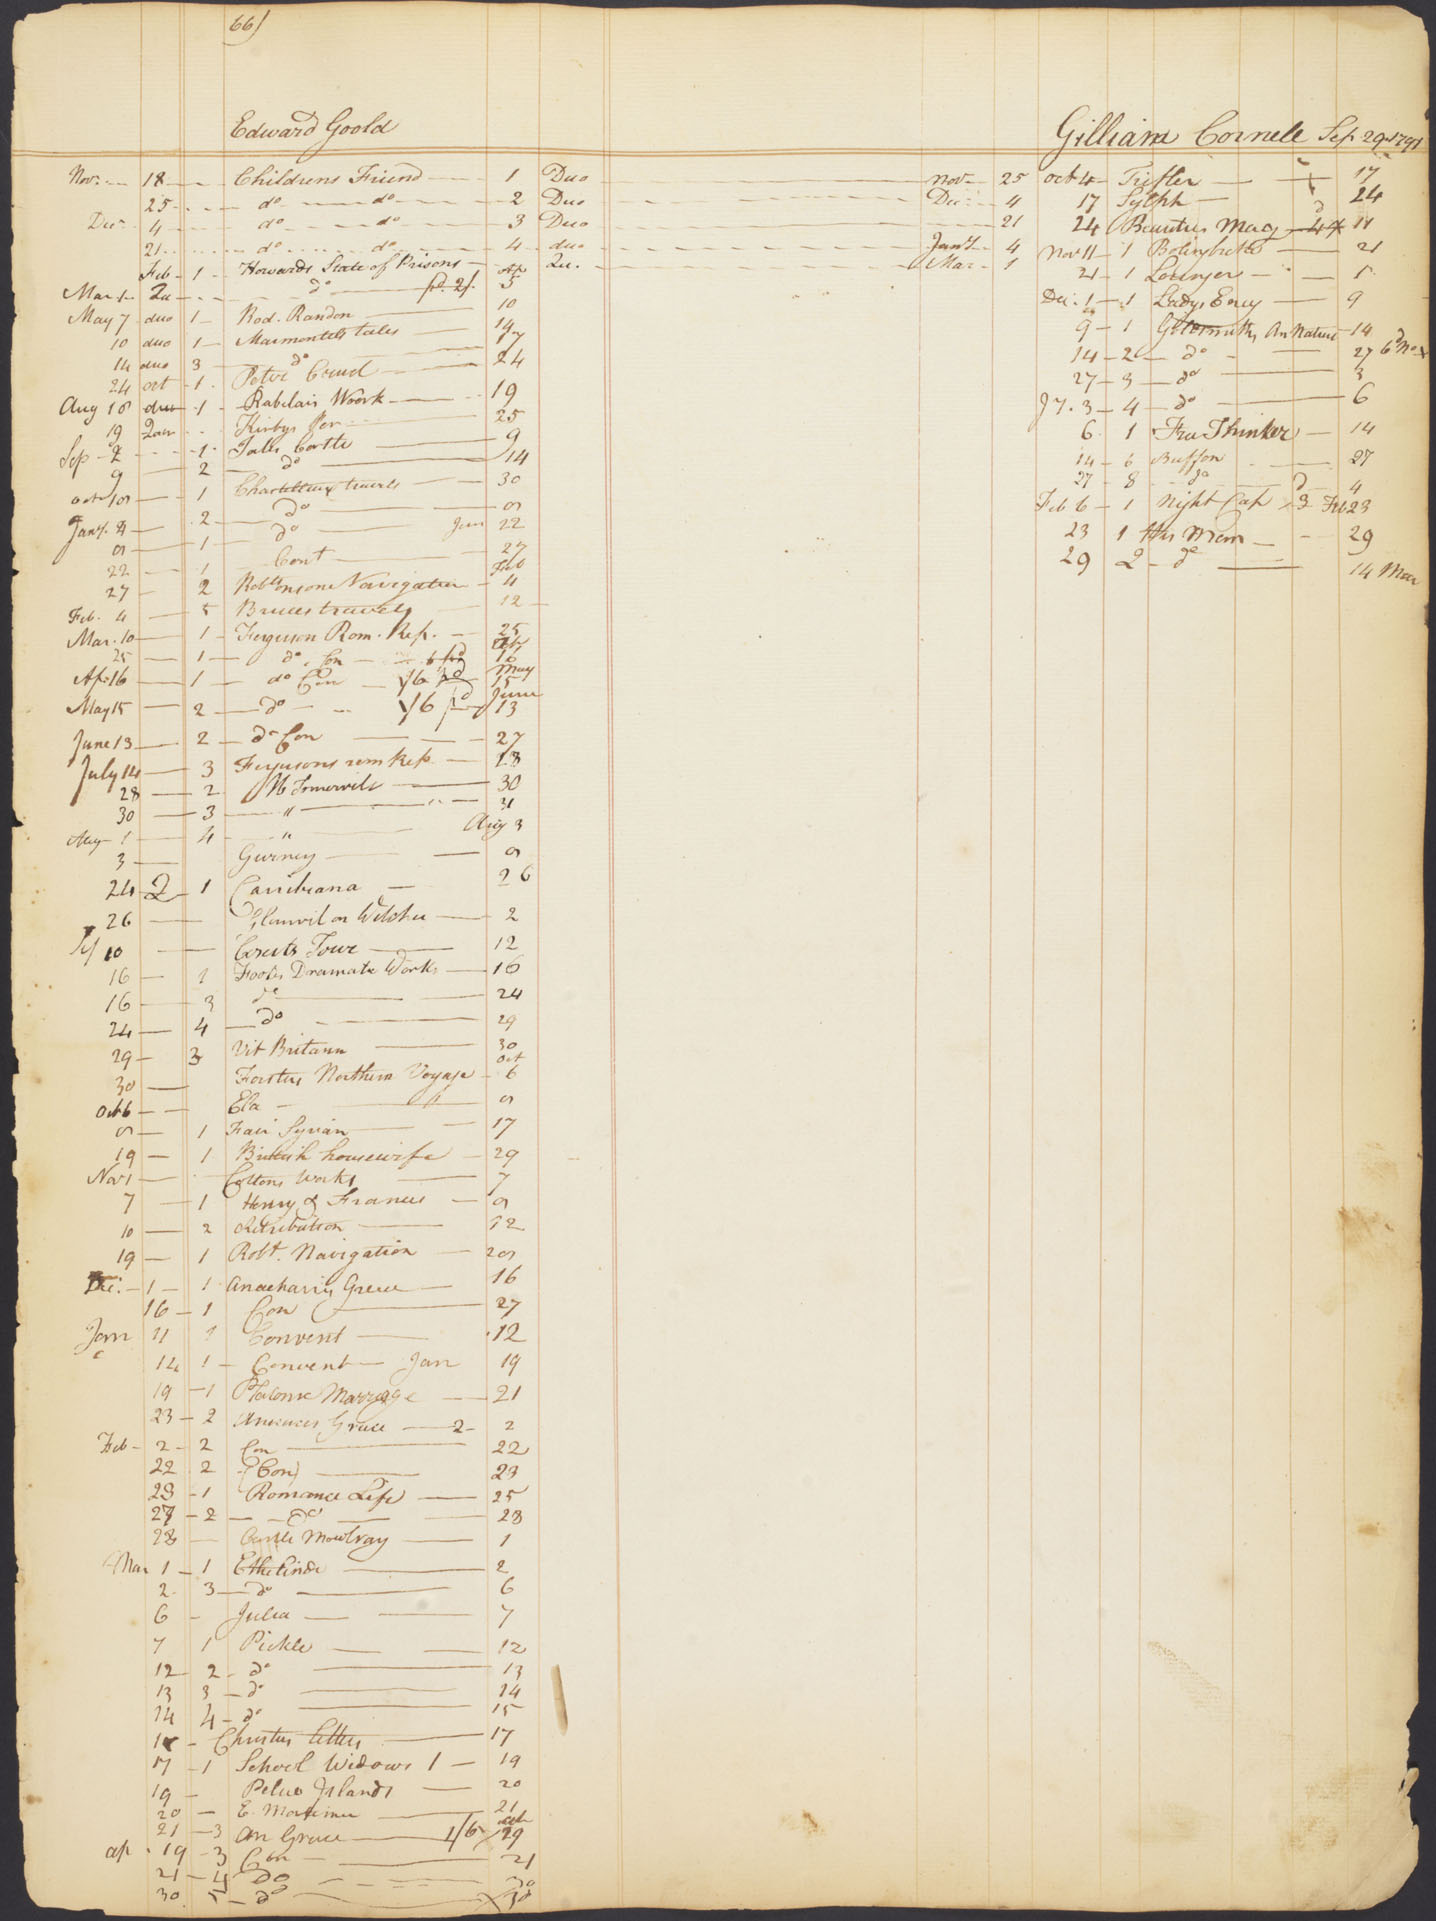 66)
Edward Goold
Nov. 18 Childrens Friend 1 Duo Nov 25
25 do do 2 Duo Dec 4
Dec 4 do do 3 Duo 21
21 do do 4 duo Jany. 4
Feb 1 Howards State of Prisons Ap Qu. Mar 1
Mar 1 Qu do pd. 2/. 5
May 7 duo 1 Rod. Random 10
10 duo 1 Marmontels tales 14
14 duo 3 do 17
24 oct 1 Peter Pindar 24
Aug 18 duo 1 Rabelais Woork 19
19 Kirbys 25
Sep 2 1 Tales Castle 9
9 2 do 14
oct 1 Chastelleux travels 30
2 do 9
Jany. 1 do Jan 22
22 1 Cont 27
27 2 Robertsons Navigation Feb 4
Feb. 4 5 Bruces travels 12
Mar. 10 1 Ferguson Rom. Rep. 25
25 1 do. Con 16
Ap 16 1 do Con 1/6 pd May 15
May 15 2 do 1/6 pd June 13
June 13 2 do Con 27
July 14 3 Fergusons rom Rep 28
28 2 Somervile 30
30 3 " " 31
Aug 1 4 " Aug 3
3 Gurney 9
24 2 1 Carribiana 26
26 Glanvil on Witches 2
10 Coxets Tour 12
16 1 Footes Dramatic Works 16
16 3 do 24
24 4 do 29
29 3 Vit Britann 30
30 Forsters Northern Voyage oct 6
Oct 6 Ela 9
9 1 Fair Syrian 17
19 1 British housewife 29
Nov 1 Cottons works 7
7 1 Henry & Frances 9
10 2 Retribution 12
19 1 Robt. Navigation 29
Dec. 1 1 Anacharsis Greece 16
16 1 Con 27
Jan 11 1 Convent 12
14 1 Convent Jan 19
19 1 Platonic Marrage 21
23 2 Greece 2 2
Feb 2 2 Con 22
22 2 (Con) 23
23 1 Romance Life 25
27 2 Do 28
28 Castle Mowbray 1
Mar 1 1 Ethelinde 2
2 3 do 6
6 Julia 7
7 1 Pickle 12
12 2 do 13
13 3 do 14
14 4 do 15
15 Chesters letters 17
17 1 School Widows 1 19
19 Pelew Islands 20
20 E. Mortimer 21
21 3 An Greece 1/6 ap 29
ap 19 3 Con 21
21 4 Do 30
30 5 do 30
Gilliam Cornell Sep 29 1791
Oct 4 Trifler 17
17 Sylph 24
24 Beauties Mag 4 11
Nov 11 1 Bolinbroke 21
21 1 Lounger 1
Dec. 1 1 Ladys Ency 9
9 1 Goldsmiths An Nature 14
14 2 do 27
27 3 do 3
Jy. 3 4 do 6
6 1 Free Thinker 14
14 6 Buffon 27
27 8 do 4
Feb 6 1 Night Cap 3 Feb 23
23 1 His Mem 29
29 2 do 14 Mar